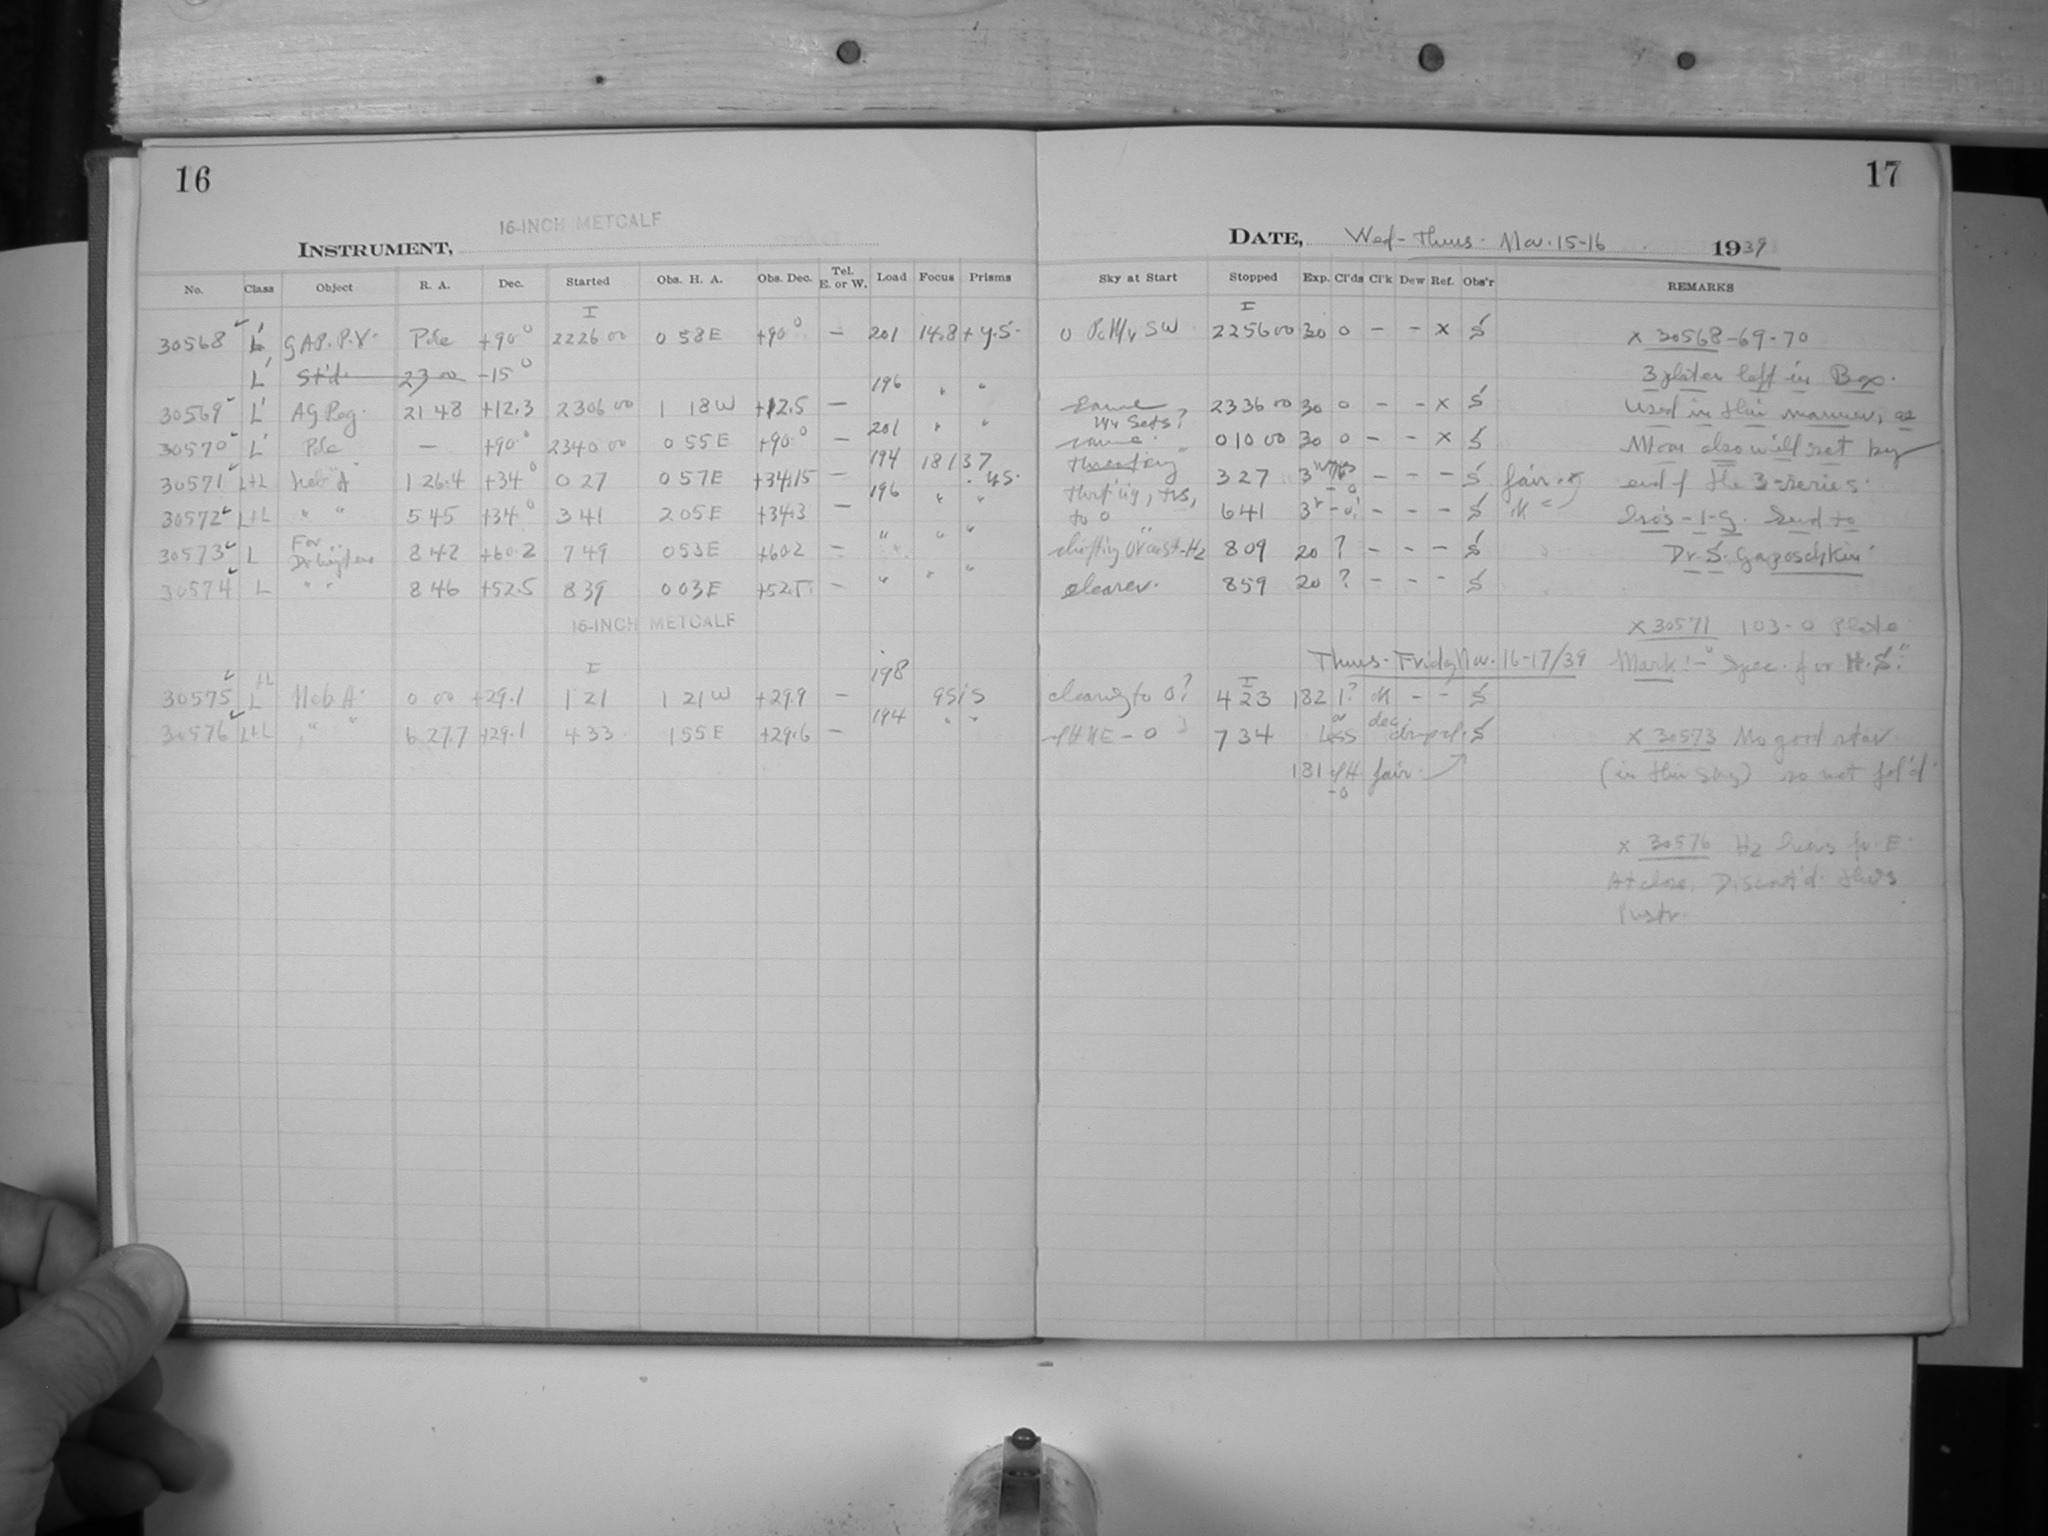 16
17
16-INCH METCALF
INSTRUMENT,
DATE, Wed-Thurs. Nov. 15-16 1939
No. Class Object R. A. Dec. Started Obs. H. A. Obs. Dec. Tel. E. or W. Load Focus Prisms Sky at Start Stopped Exp. Cl'ds Cl'k Dew Ref. Obs'r REMARKS
I I
30568 L' Pole +90° 2226 00 0 58E +90° — 201 14.8 + y.S. 0 SW 2256 00 30 0 – – x S x 30568-69-70
L' St'd. 23 00 -15° 3 plates left in Box.
30569 L' AG Peg. 21 48 +12.3 2306 00 1 18W +12.5 — 196 " " same 2336 00 30 0 – – x S used in this manner, as
30570 L' Pole — +90° 2340 00 0 55E +90° — 201 " " same 010 00 30 0 – – x S Moon also will set by
30571 L+L "A" 1 26.4 +34° 0 27 0 57E +34.15 — 194 18137 3 27 – – – S fair end of the 3-series.
30572 L+L " " 5 45 +34° 3 41 2 05E +34.3 — 196 " " to 0 6 41 – – – S Send to
30573 L For 8 42 +60.2 7 49 0 53E +60.2 — " " " 8 09 20 ? – – – S Dr. S. Gaposchkin
30574 L " " 8 46 +52.5 8 39 0 03E +52.5 — " " " clearer. 8 59 20 ? – – – S
16-INCH METCALF
x 30571 103-0 Plate
Thurs-Friday Nov. 16-17/39 Mark:- "Spec. for H.S."
I I
30575 L+L A. 0 00 +29.1 1 21 1 21W +29.9 — 198 clearing to 0? 4 23 182 1? – – S
30576 L+L " " 6 27.7 +29.1 4 33 1 55E +29.6 — 194 " " 7 34 Less S x 30573 No good star
181 fair (in this sky) so not fol'd.
-0
x 30576 Hz for E.
At close. Discont'd this
Instr.